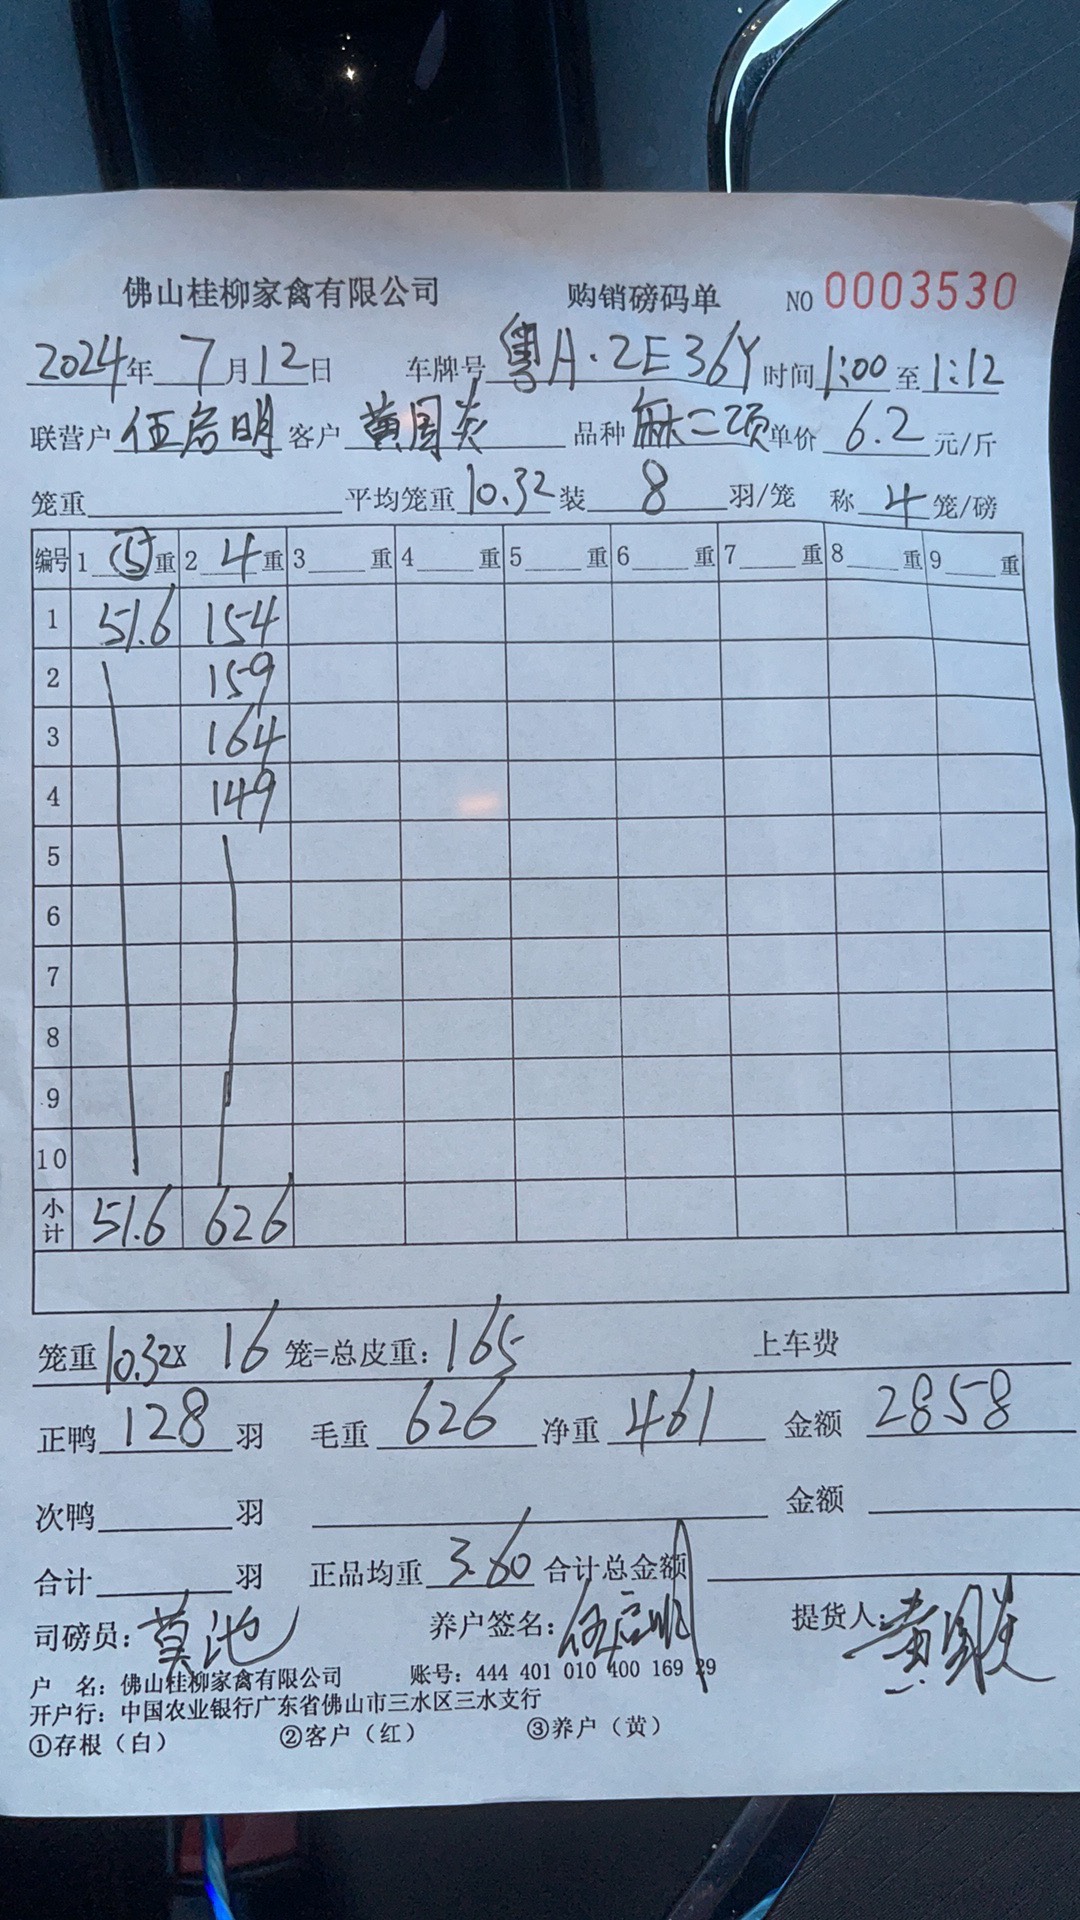 佛山桂柳家禽有限公司 购销磅码单 NO 0003530
2024年 7月12日 车牌号 粤A·2E36Y 时间 1:00 至 1:12
联营户 伍启明 客户 黄国炎 品种 麻二项 单价 6.2 元/斤
笼重 平均笼重 10.32 装 8 羽/笼 称 4 笼/磅
编号 1 (5) 重 2 4 重 3 重 4 重 5 重 6 重 7 重 8 重 9 重
1 51.6 154
2 159
3 164
4 149
5
6
7
8
9
10
小计 51.6 626
笼重 10.32X 16 笼=总皮重: 165 上车费
正鸭 128 羽 毛重 626 净重 461 金额 2858
次鸭 羽 金额
合计 羽 正品均重 3.60 合计总金额
司磅员: 莫池 养户签名: 伍启明 提货人: 黄国炎
户 名: 佛山桂柳家禽有限公司 账号: 444 401 010 400 169 29
开户行: 中国农业银行广东省佛山市三水区三水支行
①存根（白） ②客户（红） ③养户（黄）